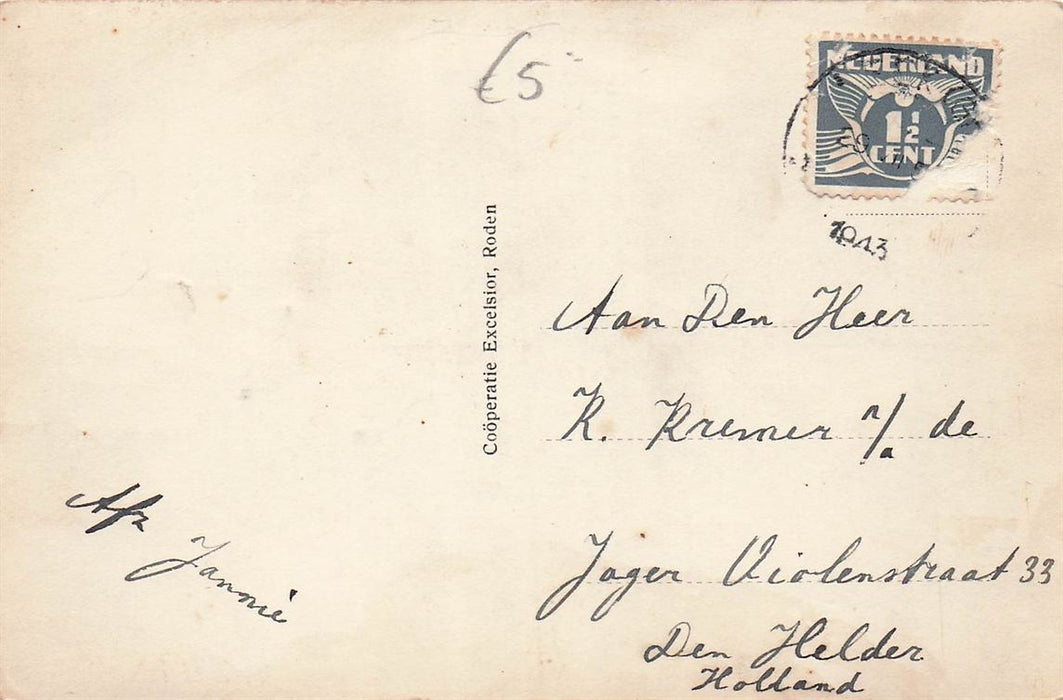 €5
NEDERLAND
1½
CENT
1943
Coöperatie Excelsior, Roden
Aan Den Heer
K. Kremer n/a de
Jager Violenstraat 33
Den Helder
Holland
Afz
Jannie